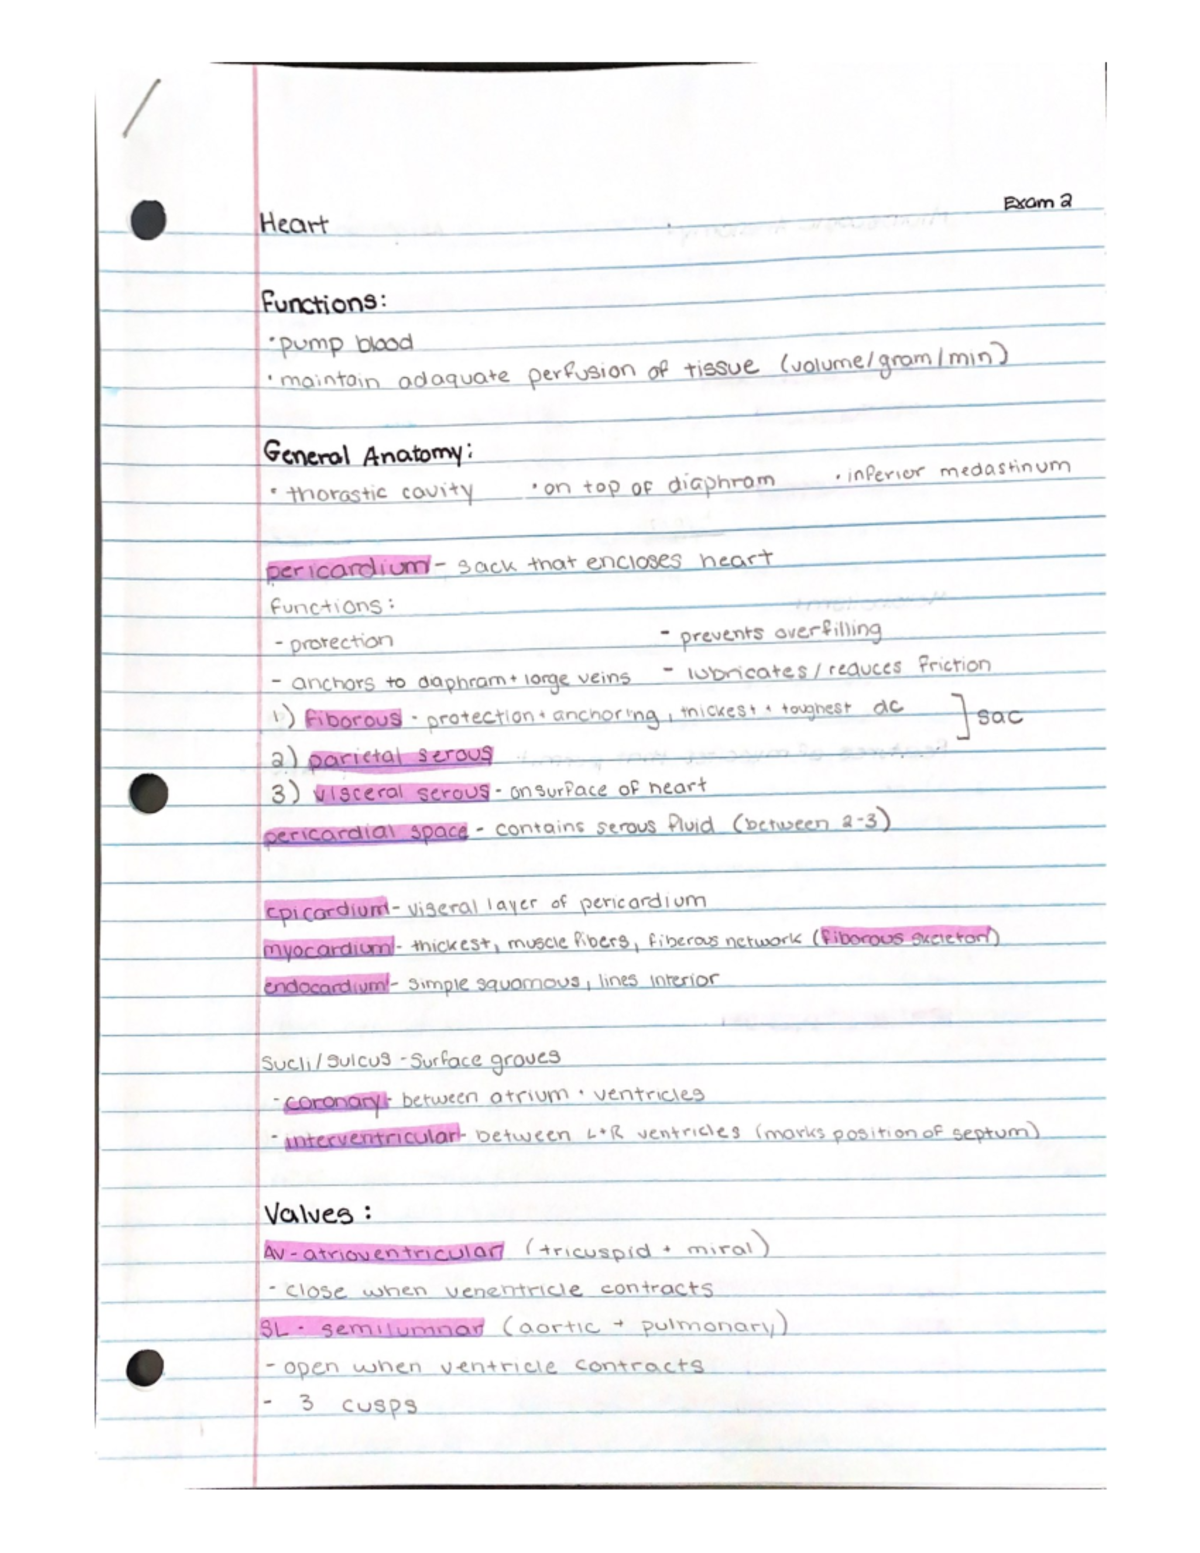 Exam 2
Heart
Functions:
· pump blood
· maintain adaquate perfusion of tissue (volume/gram/min)
General Anatomy:
· thorastic cavity · on top of diaphram · inferior medastinum
pericardium - sack that encloses heart
functions:
- protection - prevents overfilling
- anchors to daphram + large veins - lubricates/reduces friction
1) fiborous - protection + anchoring, thickest + toughest dc ] sac
2) parietal serous
3) visceral serous - on surface of heart
pericardial space - contains serous fluid (between 2-3)
epicardium - viseral layer of pericardium
myocardium - thickest, muscle fibers, fiberous network (fiborous skeleton)
endocardium - simple squamous, lines interior
Sucli/sulcus - Surface groves
- coronary - between atrium + ventricles
- interventricular - between L+R ventricles (marks position of septum)
Valves:
AV - atrioventricular (tricuspid + miral)
- close when venentricle contracts
SL - semilumnar (aortic + pulmonary)
- open when ventricle contracts
- 3 cusps